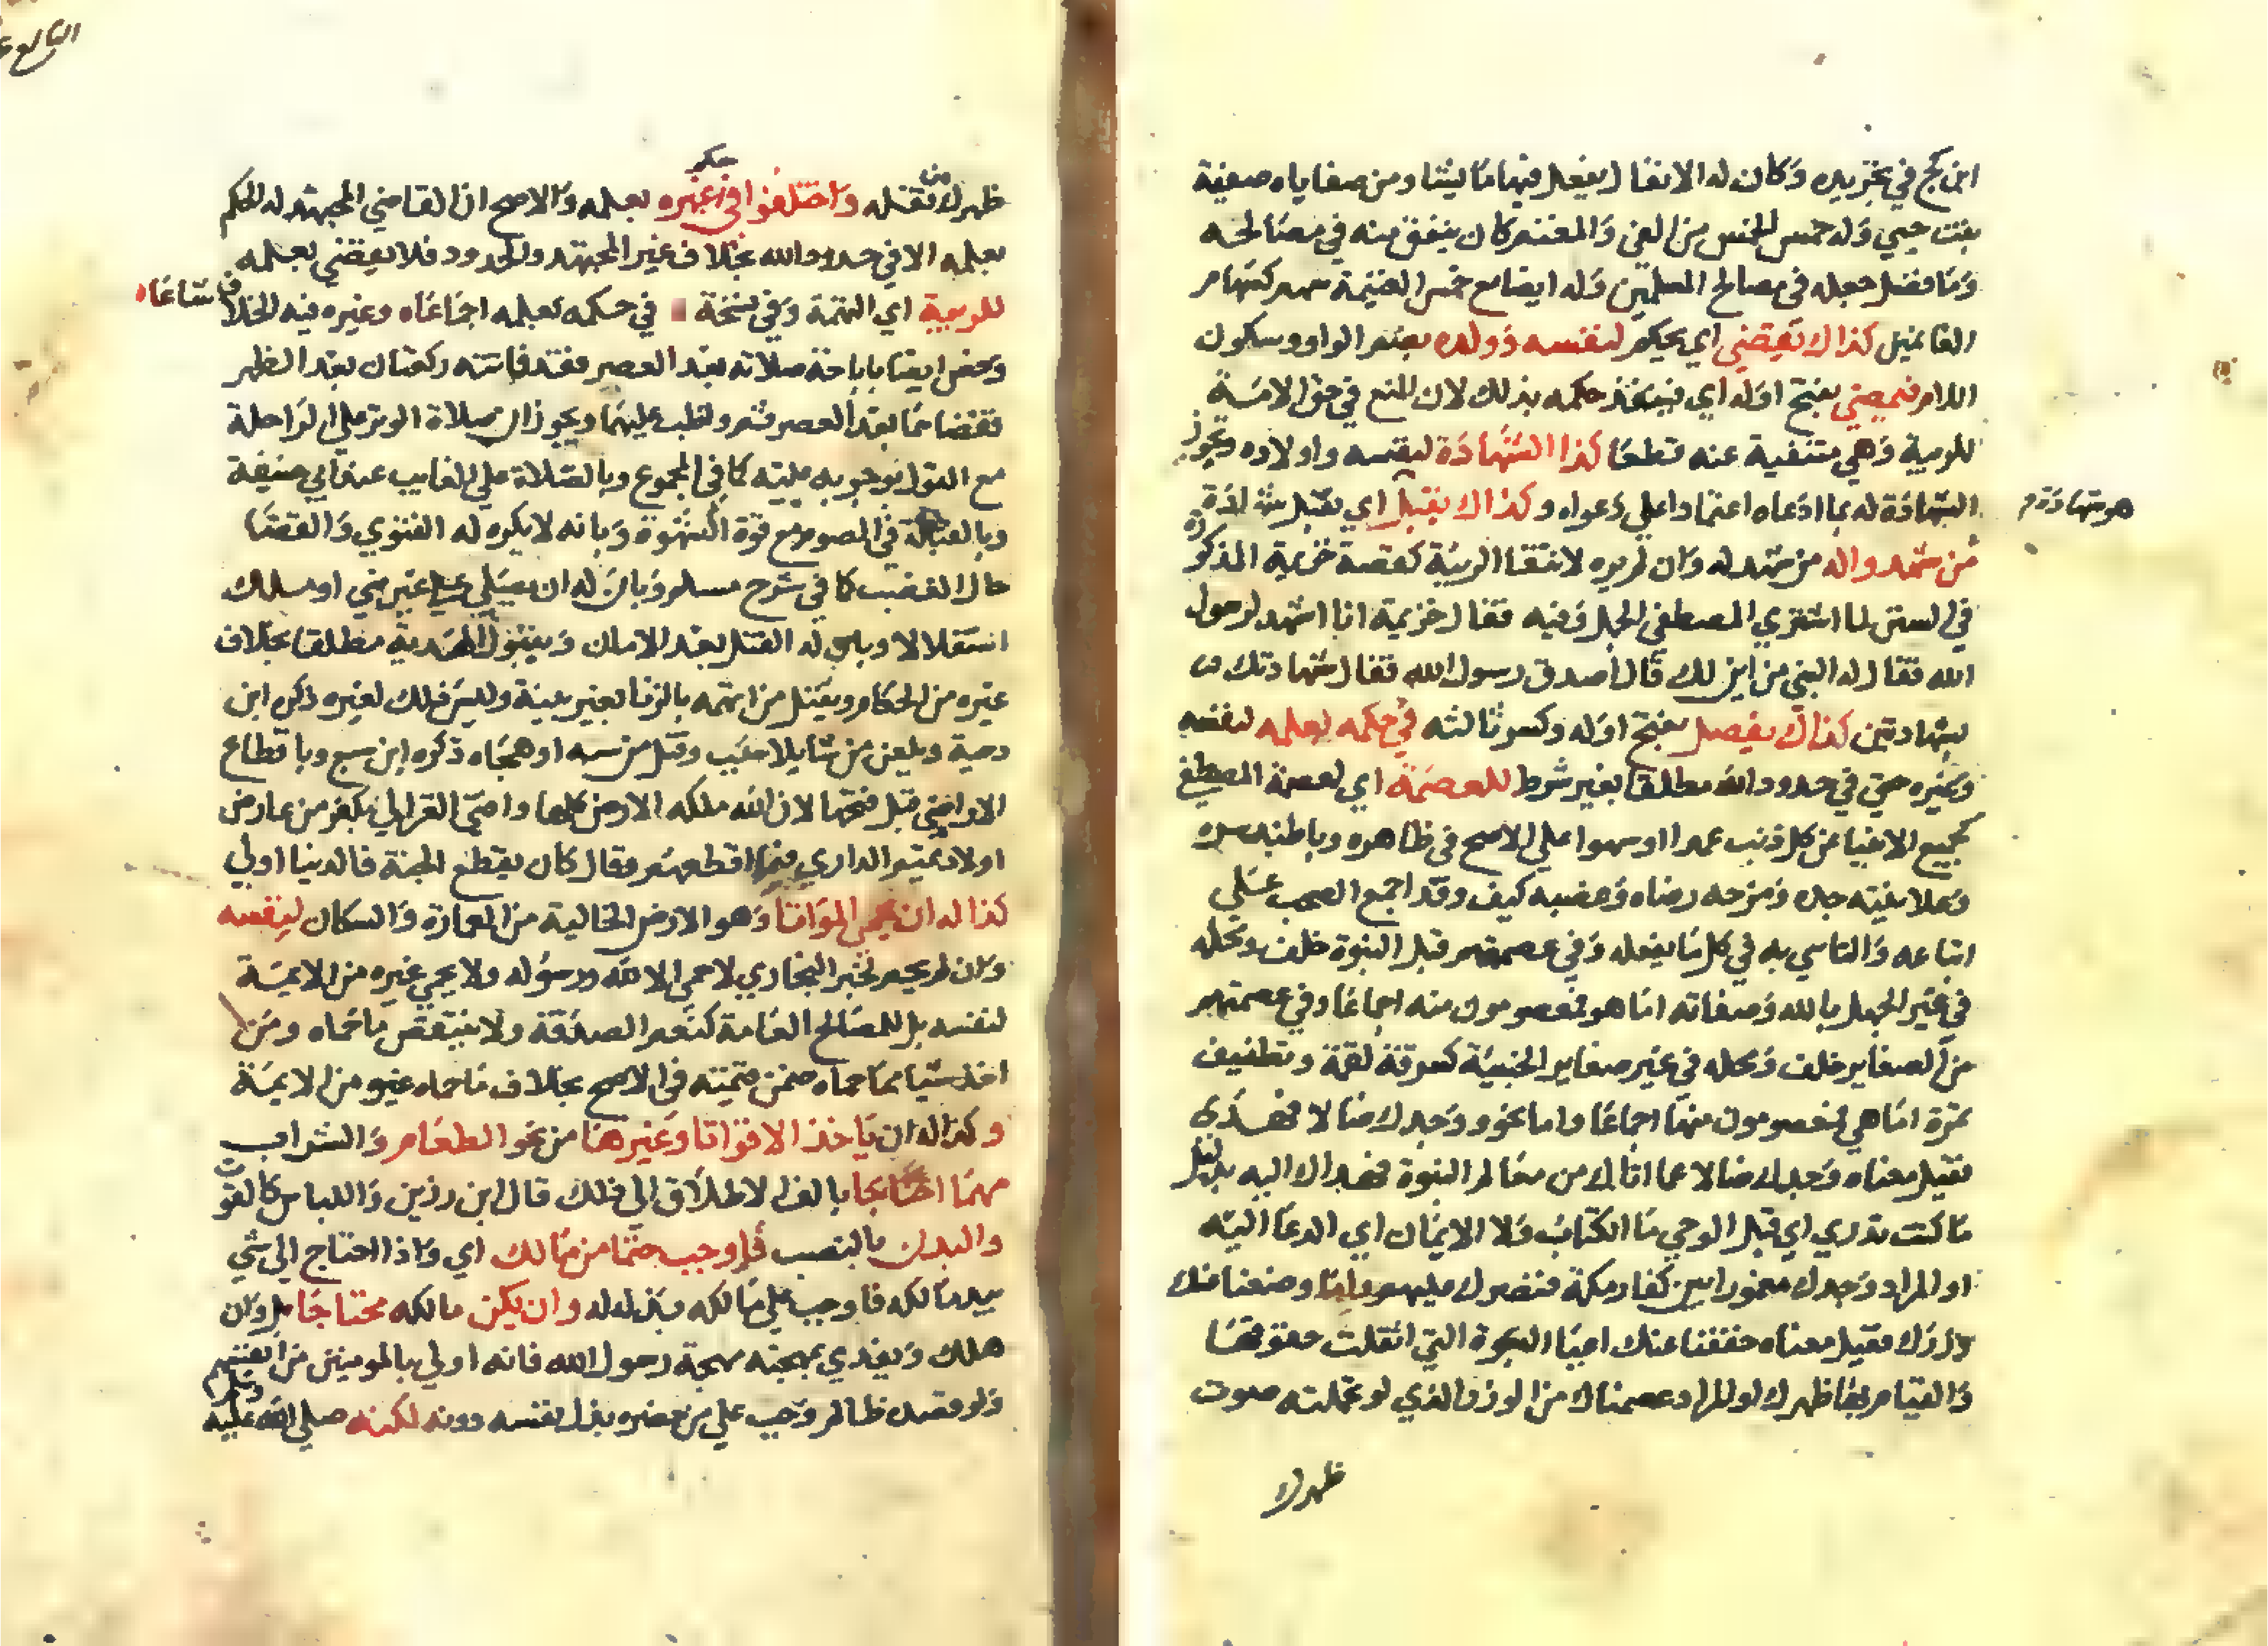 ابن كج في تجريده وكان له الانفال يفعل فيها ما يشا ومن صفاياه صفية
بنت حيي وله خمس الخمس من الفي والمغنم كان ينفق منه في مصالحه
وما فضل جعله في مصالح المسلمين وله ايضا مع خمس الغنيمة سهم كسهام
الغانمين كذاك يقضي اي يحكم لنفسه وولده بضم الواو وسكون
اللام فيمضي بفتح اوله اي فينفذ حكمه بذلك لان المنع في حق الامة
للريبة وهي منتفية عنه قطعا كذا الشهادة لنفسه واولاده ويجوز
الشهادة له بما ادعاه اعتمادا علي دعواه وكذاك يقبل اي يقبل شهادة
هو شهادة م
من شهد واله من شهد له وان لم يره لانتفا الريبة كقصة خزيمة المذكورة
في السنن لما اشتري المصطفي الجمل وفيه فقال خزيمة انا اشهد لرسول
الله فقال له النبي من اين لك قال اصدق رسول الله فقال شهادتك
بشهادتين كذاك يفصل بفتح اوله وكسر ثالثه في حكمه بعلمه لنفسه
وغيره حتي في حدود الله مطلقا بغير شرط للعصمة اي لعصمة المصطفي
كجميع الانبيا عن كل ذنب عمدا او سهوا علي الاصح في ظاهره وباطنه سره
وعلانيته جده ومزحه رضاه وغضبه كيف وقد اجمع الصحب علي
اتباعه والتاسي به في كل ما يفعله وفي عصمتهم قبل النبوة خلف ومحله
في غير الجهل بالله وصفاته اما هو فمعصومون منه اجماعا وفي عصمتهم
من الصغاير خلف ومحله في غير صغاير الخسية كسرقة لقمة وتطفيف
تمرة اما هي فمعصومون منها اجماعا واما نحو ووجدك ضالا فهدي
فقيل معناه وجدك ضالا عما اتاك من معالم النبوة فهداك اليه بدليل
ما كنت تدري اي قبل الوحي ما الكتاب ولا الايمان اي الدعا اليه
او المراد وجدك مغمورا بين كفار مكة فنصرك عليهم واما ووضعنا عنك
وزرك فقيل معناه خففنا عنك اعبا النبوة التي اثقلت حقوقها
والقيام بها ظهرك او المراد عصمناك من الوزر الذي لو تحملته صوت
ظهرك
ظهرك من ثقله واختلفوا في حكم غيره بعلمه والاصح ان القاضي المجتهد له الحكم
بعلمه الا في حدود الله بخلاف غير المجتهد والحدود فلا يقضي بعلمه
للريبة اي التهمة وفي نسخة في حكمه بعلمه اجماعاه وغيره فيه الخلاف شاعاه
وخص ايضا باباحة صلاته بعد العصر فقد فاتته ركعتان بعد الظهر
فقضاهما بعد العصر ثم واظب عليهما ويجوز ان صلاة الوتر علي الراحلة
مع القول بوجوبه عليه كما في المجموع وبالصلاة علي الغايب عند ابي حنيفة
وبالقبلة في الصوم مع قوة الشهوة وبانه لا يكره له الفتوي والقضا
حال الغضب كما في شرح مسلم وبان له ان يصلي علي غير نبي او ملك
استقلالا وبان له القتل بعد الامان وبقبول الهدية مطلقا بخلاف
غيره من الحكام ويقتل من اتهمه بالزنا بغير بينة وليس ذلك لغيره ذكره ابن
دحية ويلعن من شا بلا سبب وقتل من سبه او هجاه ذكره ابن سبع وباقطاع
الاراضي قبل فتحها لان الله ملكه الارض كلها وافتي الغزالي بكفر من عارض
اولاد تميم الداري فيما اقطعهم وقال كان يقطع الجنة فالدنيا اولي
كذا له ان يحمي المواتا وهو الارض الخالية من العمارة والسكان لنفسه
وان لم يحم لخبر البخاري لا حمي الا لله ورسوله ولا يحمي غيره من الايمة
لنفسه بل للمصالح العامة كنعم الصدقة ولا ينتقض ما حماه ومن
اخذ شيا مما حماه ضمن قيمته في الاصح بخلاف ما حماه غيره من الايمة
وكذا له ان ياخذ الاقواتا وغيرها من نحو الطعام والشراب
مهما احتاجا بالف الاطلاق الي ذلك قال ابن رزين واللباس كالقوت
والبدل بالنصب فاوجب حتما من مالك اي واذا احتاج الي شي
بيد مالكه فاوجب علي مالكه بذله له وان يكن مالكه محتاجا بل وان
هلك ويفدي بمهجته مهجة رسول الله فانه اولي بالمومنين من انفسهم
ولو قصده ظالم وجب علي من حضره بذل نفسه دونه لكنه صلي الله عليه وسلم